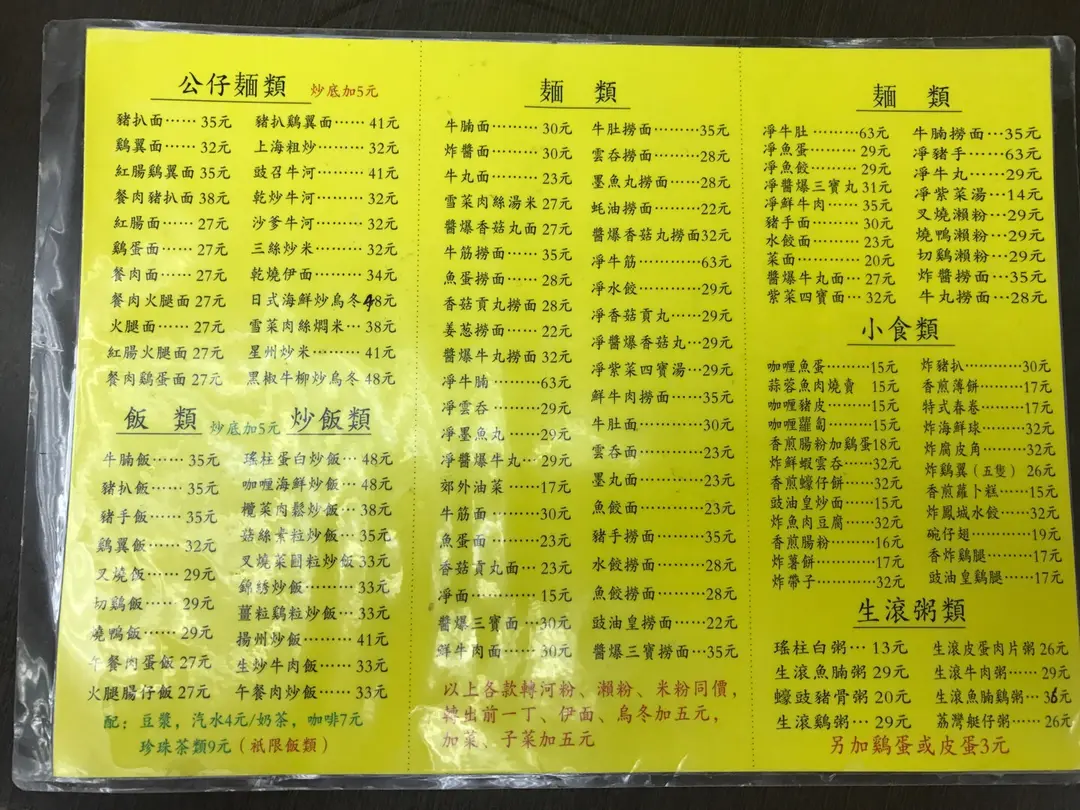 公仔麵類 炒底加5元
豬扒面……35元
鷄翼面……32元
紅腸鷄翼面 35元
餐肉豬扒面 38元
紅腸面……27元
鷄蛋面……27元
餐肉面……27元
餐肉火腿面 27元
火腿面……27元
紅腸火腿面 27元
餐肉鷄蛋面 27元
豬扒鷄翼面……41元
上海粗炒………32元
豉召牛河………41元
乾炒牛河………32元
沙爹牛河………32元
三絲炒米………32元
乾燒伊面………34元
日式海鮮炒烏冬48元
雪菜肉絲燜米…38元
星州炒米………41元
黑椒牛柳炒烏冬 48元
飯 類 炒底加5元
牛腩飯……35元
豬扒飯……35元
豬手飯……35元
鷄翼飯……32元
叉燒飯……29元
切鷄飯……29元
燒鴨飯……29元
午餐肉蛋飯 27元
火腿腸仔飯 27元
炒飯類
瑤柱蛋白炒飯…48元
咖喱海鮮炒飯…48元
欖菜肉鬆炒飯…38元
菇絲素粒炒飯…35元
叉燒菜圓粒炒飯 33元
錦綉炒飯………33元
薑粒鷄粒炒飯…33元
揚州炒飯………41元
生炒牛肉飯……33元
午餐肉炒飯……33元
配：豆漿，汽水4元/奶茶，咖啡7元
珍珠茶類9元（祇限飯類）
麵 類
牛腩面………30元
炸醬面………30元
牛丸面………23元
雪菜肉絲湯米 27元
醬爆香菇丸面 27元
牛筋撈面……35元
魚蛋撈面……28元
香菇貢丸撈面 28元
姜葱撈面……22元
醬爆牛丸撈面 32元
凈牛腩………63元
凈雲吞………29元
凈墨魚丸……29元
凈醬爆牛丸…29元
郊外油菜……17元
牛筋面………30元
魚蛋面………23元
香菇貢丸面…23元
凈面…………15元
醬爆三寶面…30元
鮮牛肉面……30元
牛肚撈面………35元
雲吞撈面………28元
墨魚丸撈面……28元
蚝油撈面………22元
醬爆香菇丸撈面32元
凈牛筋…………63元
凈水餃…………29元
凈香菇貢丸……29元
凈醬爆香菇丸…29元
凈紫菜四寶湯…29元
鮮牛肉撈面……35元
牛肚面…………30元
雲吞面…………23元
墨丸面…………23元
魚餃面…………23元
豬手撈面………35元
水餃撈面………28元
魚餃撈面………28元
豉油皇撈面……22元
醬爆三寶撈面…35元
以上各款轉河粉、瀨粉、米粉同價，
轉出前一丁、伊面、烏冬加五元，
加菜、子菜加五元
麵 類
凈牛肚………63元
凈魚蛋………29元
凈魚餃………29元
凈醬爆三寶丸 31元
凈鮮牛肉……35元
豬手面………30元
水餃面………23元
菜面…………20元
醬爆牛丸面…27元
紫菜四寶面…32元
牛腩撈面…35元
凈豬手……63元
凈牛丸……29元
凈紫菜湯…14元
叉燒瀨粉…29元
燒鴨瀨粉…29元
切鷄瀨粉…29元
炸醬撈面…35元
牛丸撈面…28元
小食類
咖喱魚蛋………15元
蒜蓉魚肉燒賣 15元
咖喱豬皮………15元
咖喱蘿蔔………15元
香煎腸粉加鷄蛋18元
炸鮮蝦雲吞……32元
香煎蠔仔餅……32元
豉油皇炒面……15元
炸魚肉豆腐……32元
香煎腸粉………16元
炸薯餅…………17元
炸帶子…………32元
炸豬扒…………30元
香煎薄餅………17元
特式春卷………17元
炸海鮮球………32元
炸腐皮角………32元
炸鷄翼（五隻）26元
香煎蘿卜糕……15元
炸鳳城水餃……32元
碗仔翅…………19元
香炸鷄腿………17元
豉油皇鷄腿……17元
生滾粥類
瑤柱白粥…13元
生滾魚腩粥29元
蠔豉豬骨粥 20元
生滾鷄粥…29元
生滾皮蛋肉片粥26元
生滾牛肉粥……29元
生滾魚腩鷄粥…36元
荔灣艇仔粥……26元
另加鷄蛋或皮蛋3元